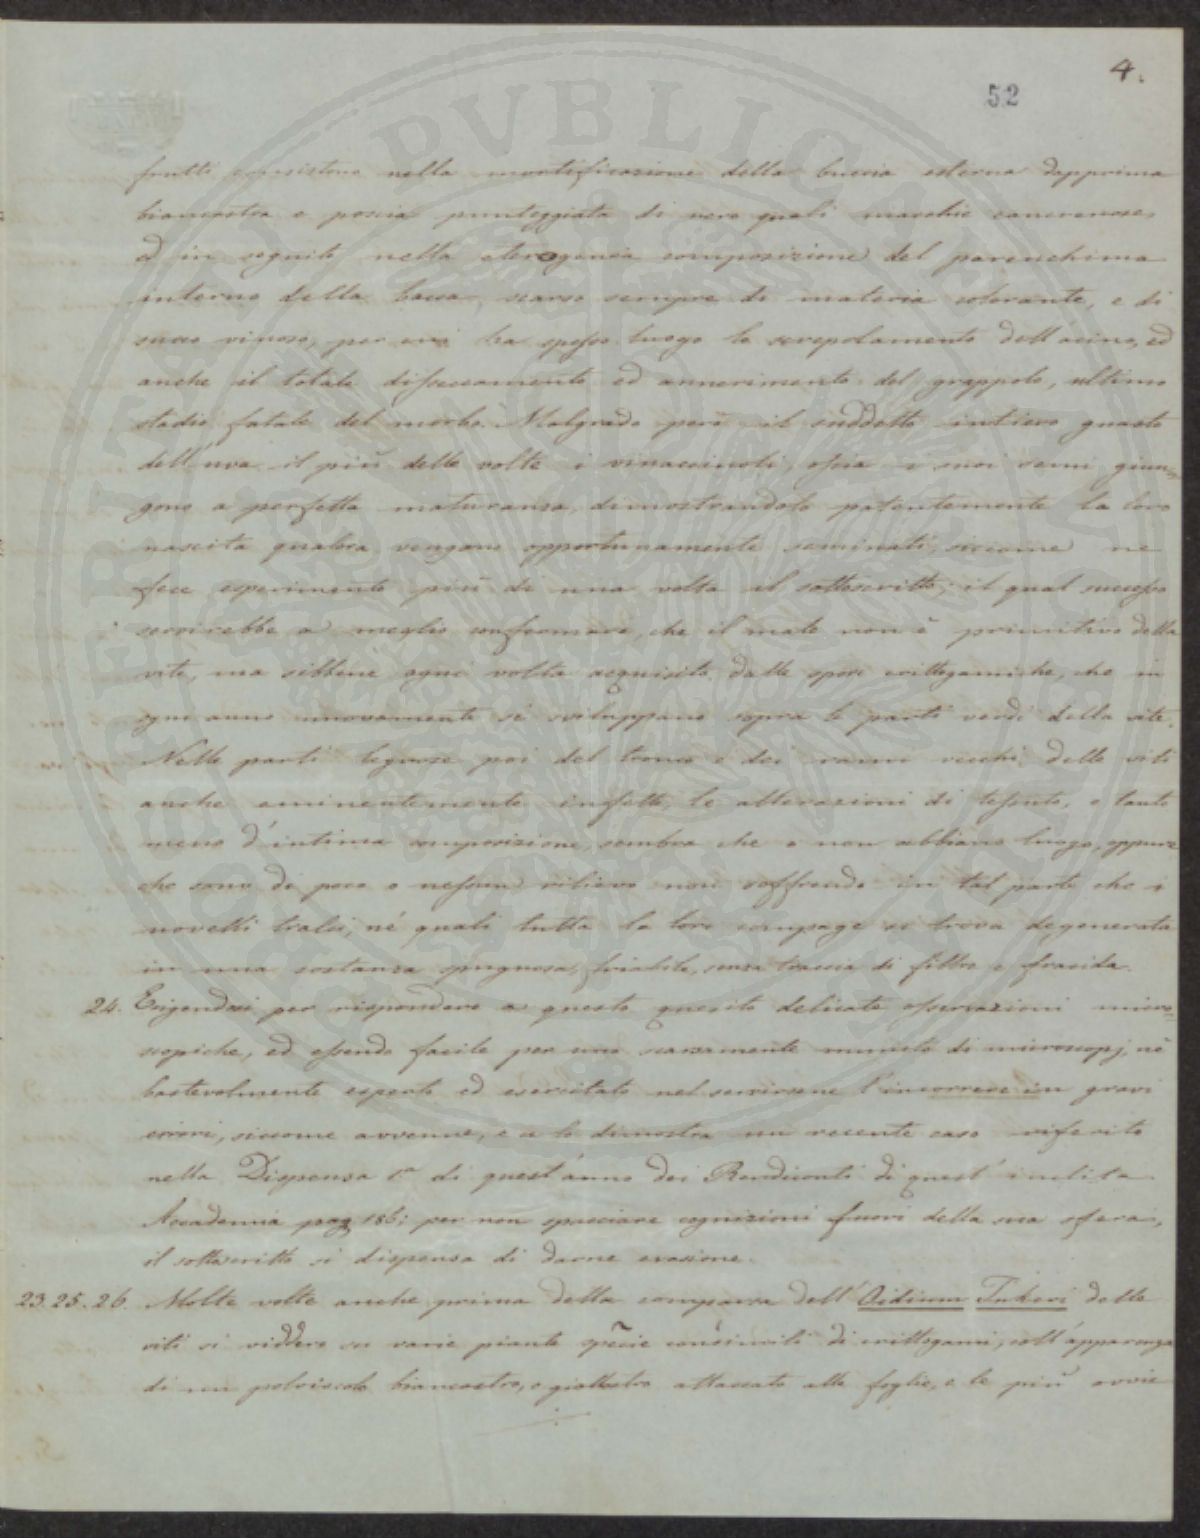 4.
52
frutti consistono nella mortificazione della buccia esterna dapprima
biancastra e poscia punteggiata di nero quali macchie cancrenose,
ed in seguito nella eterogenea composizione del parenchima
interno della bacca, scarso sempre di materia colorante, e di
succo vinoso, per cui ha spesso luogo lo screpolamento dell'acino, ed
anche il totale disseccamento ed annerimento del grappolo, ultimo
stadio fatale del morbo. Malgrado però il suddetto intiero guasto
dell'uva il più delle volte i vinacciuoli, ossia i suoi semi giun-
gono a perfetta maturanza, dimostrandolo patentemente la loro
nascita qualora vengano opportunamente seminati, siccome ne
fece esperimento più di una volta il sottoscritto; il qual successo
servirebbe a meglio confermare, che il male non è primitivo della
vite, ma sibbene ogni volta acquisito dalle spore crittogamiche, che in
ogni anno nuovamente si sviluppano sopra le parti verdi della vite.
Nelle parti legnose poi del tronco e dei rami vecchi delle viti
anche eminentemente infette, le alterazioni di tessuto, e tanto
meno d'intima composizione sembra che o non abbiano luogo, oppure
che sono di poco o nessun rilievo non soffrendo in tal parte che i
novelli tralci, né quali tutta la loro compage si trova degenerata
in una sostanza spugnosa, friabile, senza traccia di fibbra e fracida.
24. Esigendosi per rispondere a questo quesito delicate osservazioni micro=
scopiche, ed essendo facile per uno scarsamente munito di microscopj, nè
bastevolmente esperto ed esercitato nel servirsene l'incorrere in gravi
errori, siccome avvenne, e ce lo dimostra un recente caso riferito
nella Dispensa 1.a di quest'anno dei Rendiconti di quest'inclita
Accademia pag 186; per non spacciare cognizioni fuori della sua sfera,
il sottoscritto si dispensa di darne evasione.
23. 25. 26. Molte volte anche prima della comparsa dell'Oidium Tukeri delle
viti si viddero su varie piante specie consimili di crittogami, coll'apparenza
di un polviscolo biancastro, o giallastro attaccato alle foglie, e le più ovvie